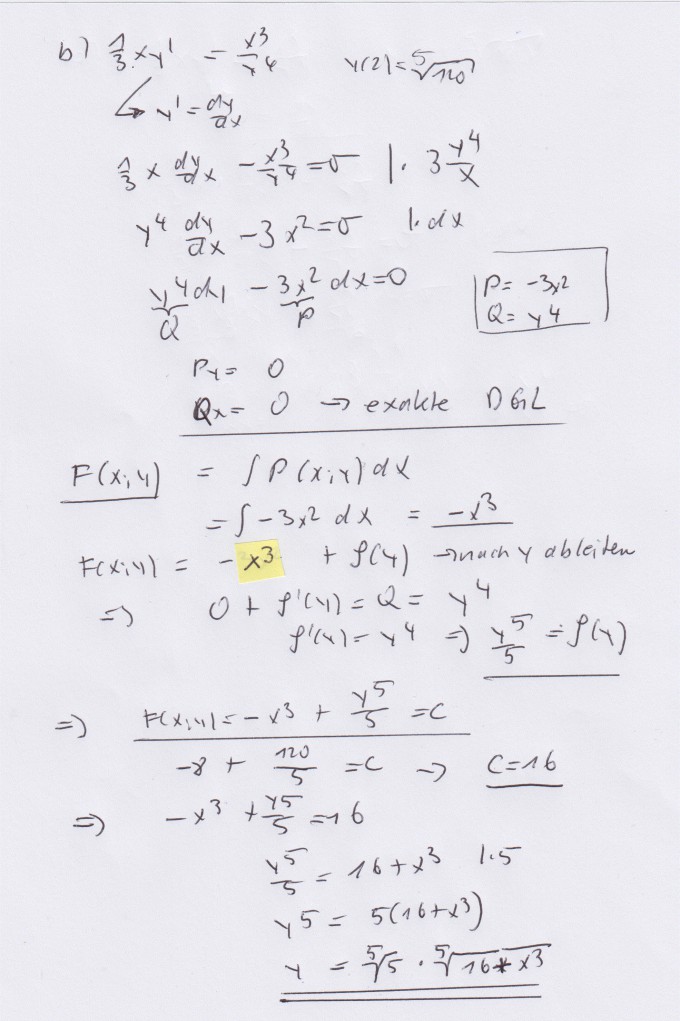 b) 1/3 xy' = x³/y⁴ y(2) = ⁵√120
↳ y' = dy/dx
1/3 x dy/dx - x³/y⁴ = 0 |· 3 y⁴/x
y⁴ dy/dx - 3x² = 0 |·dx
y⁴dy - 3x² dx = 0
Q P
P = -3x²
Q = y⁴
Py = 0
Qx = 0 → exakte DGL
F(x;y) = ∫ P(x;y) dx
= ∫ -3x² dx = -x³
F(x;y) = - x³ + φ(y) → nach y ableiten
⇒ 0 + φ'(y) = Q = y⁴
φ'(y) = y⁴ ⇒ y⁵/5 = φ(y)
⇒ F(x;y) = -x³ + y⁵/5 = C
-8 + 120/5 = C → C = 16
⇒ -x³ + y⁵/5 = 16
y⁵/5 = 16 + x³ |·5
y⁵ = 5(16 + x³)
y = ⁵√5 · ⁵√16 + x³